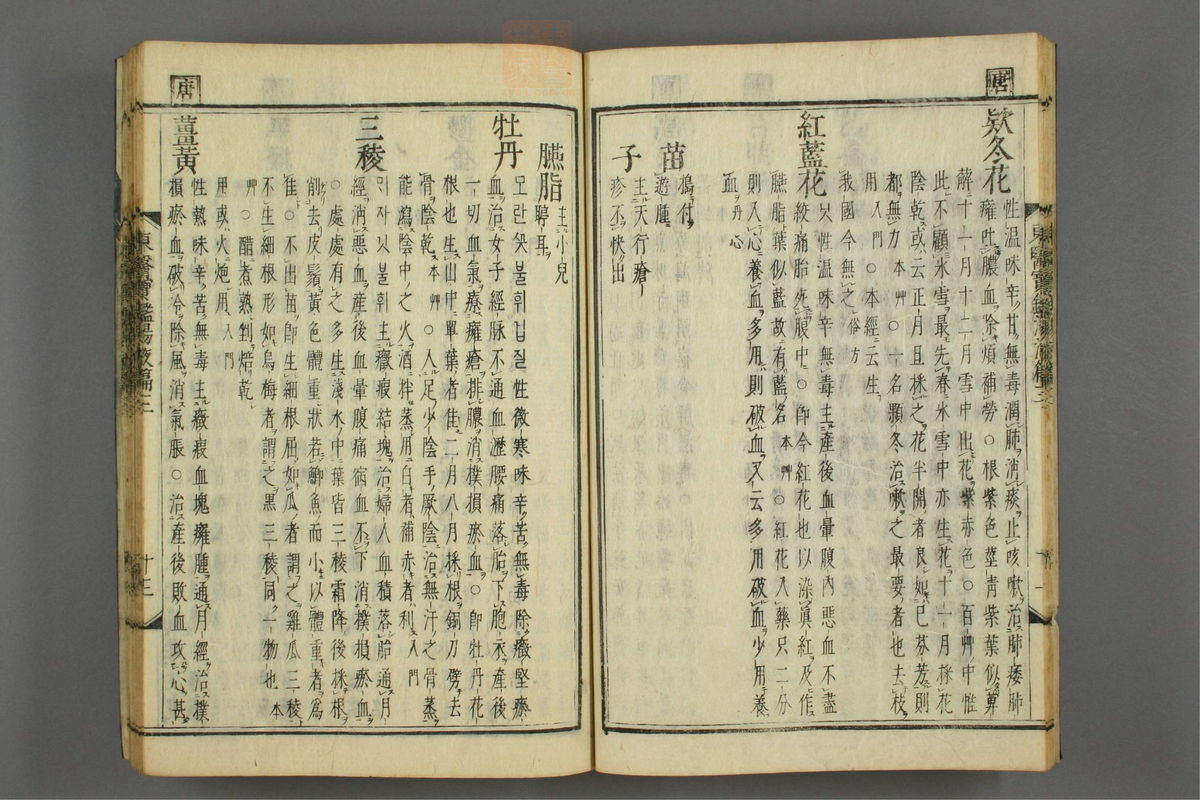 唐
欵冬花
性溫味辛甘無毒潤肺消痰止咳嗽治肺痿肺
癰吐膿血除煩補勞○根紫色莖靑紫葉似萆
解十一月十二月雪中出花紫赤色○百艸中惟
此不顧氷雪最先春氷雪中亦生花十一月採花
陰乾或云正月旦採之花半開者良如已芬芳則
都無力本艸○一名顆冬治嗽之最要者也去枝
用入門○本經云生
我國今無之俗方
紅藍花
닛性溫味辛無毒主產後血暈腹內惡血不盡
絞痛胎死腹中○卽今紅花也以染眞紅及作
臙脂葉似藍故有藍名本艸○紅花入藥只二分
則入心養血多用則破血又云多用破血少用養
血丹心
苗
搗付
遊腫
子
主天行瘡
疹不快出
臙脂
主小兒
聤耳
牡丹
모란곳불휘겁질性微寒味辛苦無毒除癥堅瘀
血治女子經脉不通血瀝腰痛落胎下胞衣產後
一切血氣療癰瘡排膿消撲損瘀血○卽牡丹花
根也生山中單葉者佳二月八月採根銅刀劈去
骨陰乾本艸○入足少陰手厥陰治無汗之骨蒸
能瀉陰中之火酒拌蒸用白者補赤者利入門
三稜
불휘主癥瘕結塊治婦人血積落胎通月
經消惡血產後血暈腹痛宿血不下消撲損瘀血
○處處有之多生淺水中葉皆三稜霜降後採根
削去皮鬚黃色體重狀若鯽魚而小以體重者爲
佳○不出苗卽生細根屈如瓜者謂之雞瓜三稜
不生細根形如烏梅者謂之黑三稜同一物也本
艸○醋煮熟剉焙乾
用或火炮用入門
唐
薑黃
性熱味辛苦無毒主癥瘕血塊癰腫通月經治撲
損瘀血破冷除風消氣脹○治產後敗血攻心甚
東醫寶鑑湯液篇三
十三